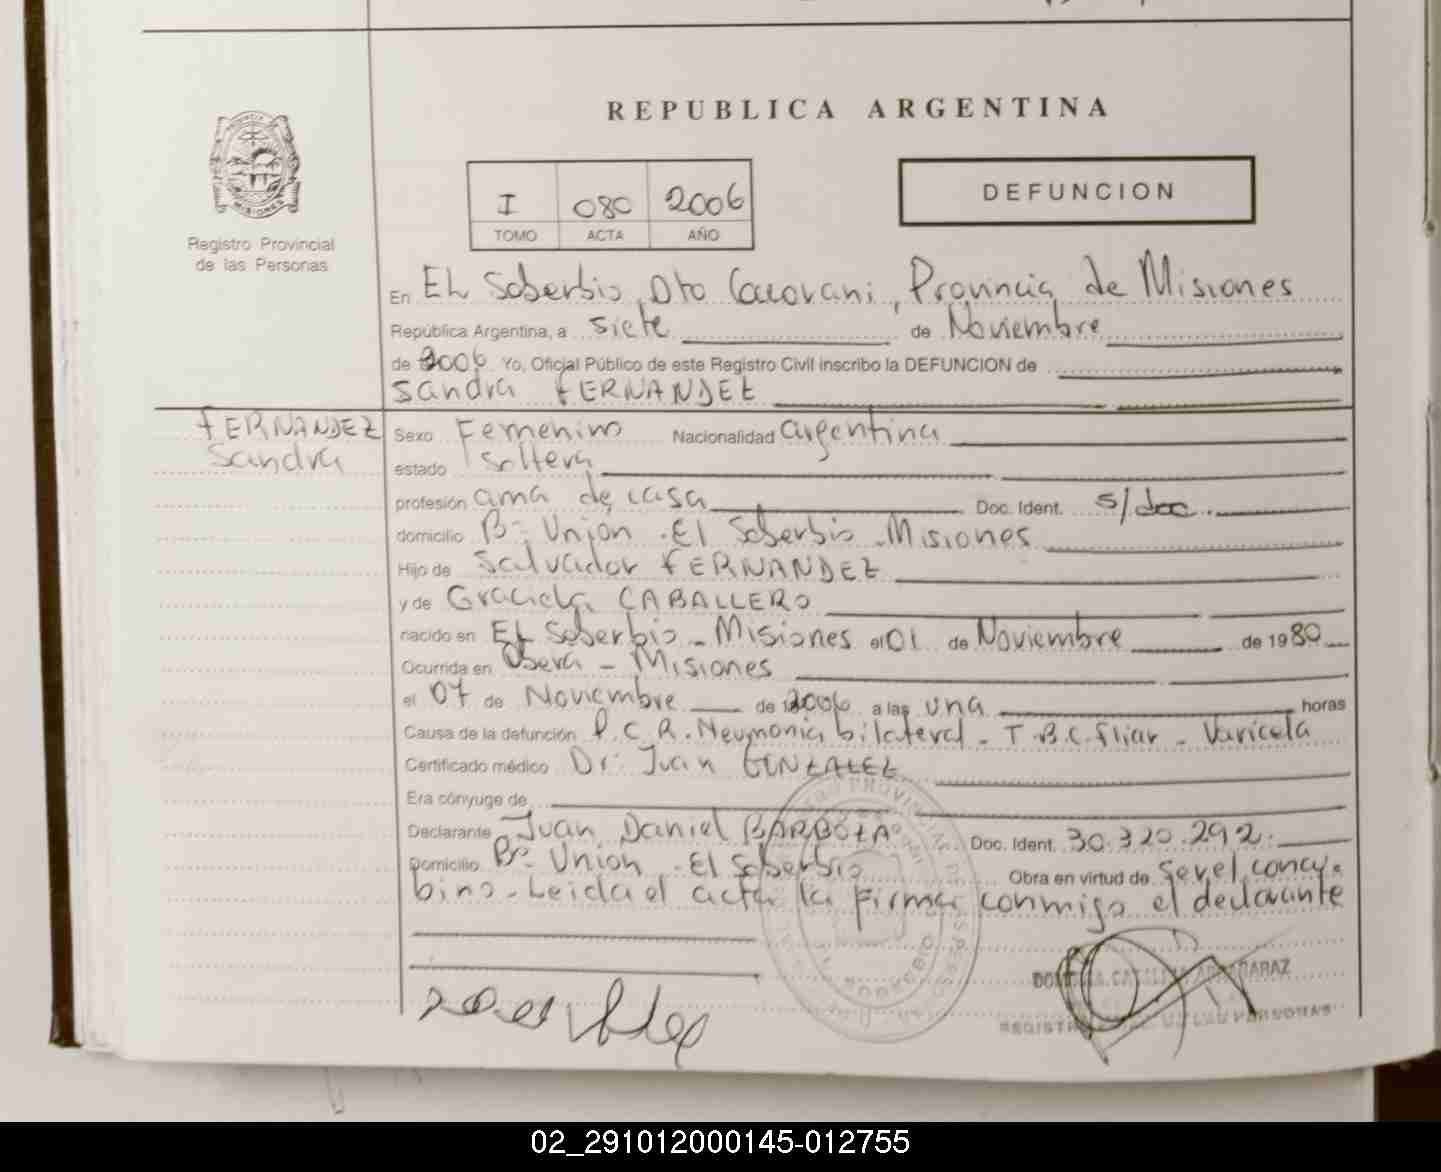 REPUBLICA ARGENTINA
I 080 2006
TOMO ACTA AÑO
DEFUNCION
Registro Provincial
de las Personas
En EL Soberbio, Dto Cacovani, Provincia de Misiones
República Argentina, a siete de Noviembre
de 2006 Yo, Oficial Público de este Registro Civil inscribo la DEFUNCION de
Sandra FERNANDEZ
FERNANDEZ
Sandra
Sexo Femenino Nacionalidad argentina
estado soltera
profesión ama de casa Doc. Ident. s/doc.
domicilio Bº Union - El Soberbio - Misiones
Hijo de Salvador FERNANDEZ
y de Graciela CABALLERO
nacido en EL Soberbio - Misiones el 01 de Noviembre de 1980
Ocurrida en Obera - Misiones
el 07 de Noviembre de 2006 a las una horas
Causa de la defunción P.C.R. Neumonia bilateral - T.B.C. fliar - Varicela
Certificado médico Dr. Juan GONZALEZ
Era cónyuge de
Declarante Juan Daniel BARBOZA Doc. Ident. 30.320.292.
Domicilio Bº Union - El Soberbio Obra en virtud de ser el concu-
bino - Leida el acta la firma conmigo el declarante
02_291012000145-012755